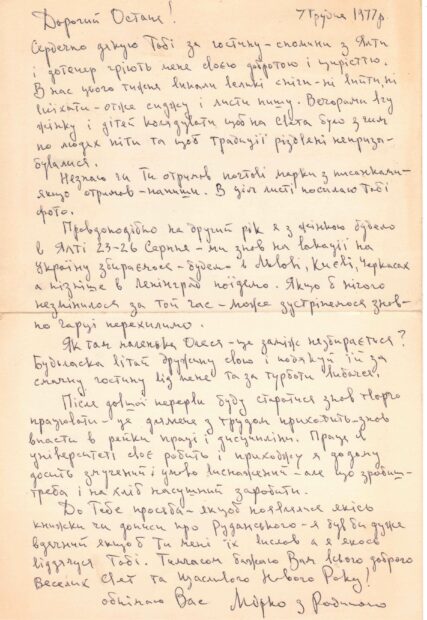 Дорогий Остапе! 7 Грудня 1977р.
Сердечно дякую Тобі за гостину - спомини з Ялти
і дотепер гріють мене своєю добротою і щирістю.
В нас цього тижня випали великі сніги - ні вийти, ні
виїхати - отже сиджу і листи пишу. Вечорами вчу
жінку і дітей колядувати щоб на Свята було з чим
по людях піти та щоб традиції різдвяні неприза-
бувалися.
Незнаю чи Ти отримав поштові марки з писанками -
якщо отримав - напиши. В цім листі посилаю Тобі
фото.
Правдоподібно на другий рік я з жінкою будемо
в Ялті 23-26 Серпня - ми знов на вакації на
Україну збираємося - будемо в Львові, Києві, Черкасах
а пізніше в Ленінград поїдемо. Якщо б нічого
незмінилося за той час - може зустрінемося знов -
по чарці перехилимо.
Як там маленька Олеся - ще заміж незбирається?
Будьласка вітай дружину свою і подякуй їй за
смачну гостину від мене та за турботи
Після довшої перерви буду старатися знов творчо
працювати - це для мене з трудом приходить - знов
впасти в рейки праці і дисципліни. Праця в
університеті своє робить і приходжу я додому
досить змучений і умово виснажений - але що зробиш -
треба і на хліб насущний заробити.
До Тебе просьба - якщоб появилися якісь
книжки чи дописи про Руданського - я був би дуже
вдячний якщоб Ти мені їх вислав а я якось
віддячуся Тобі. Тимчасом бажаю Вам всього доброго
Веселих Свят та Щасливого Нового Року!
обнімаю Вас Мірко з Родиною